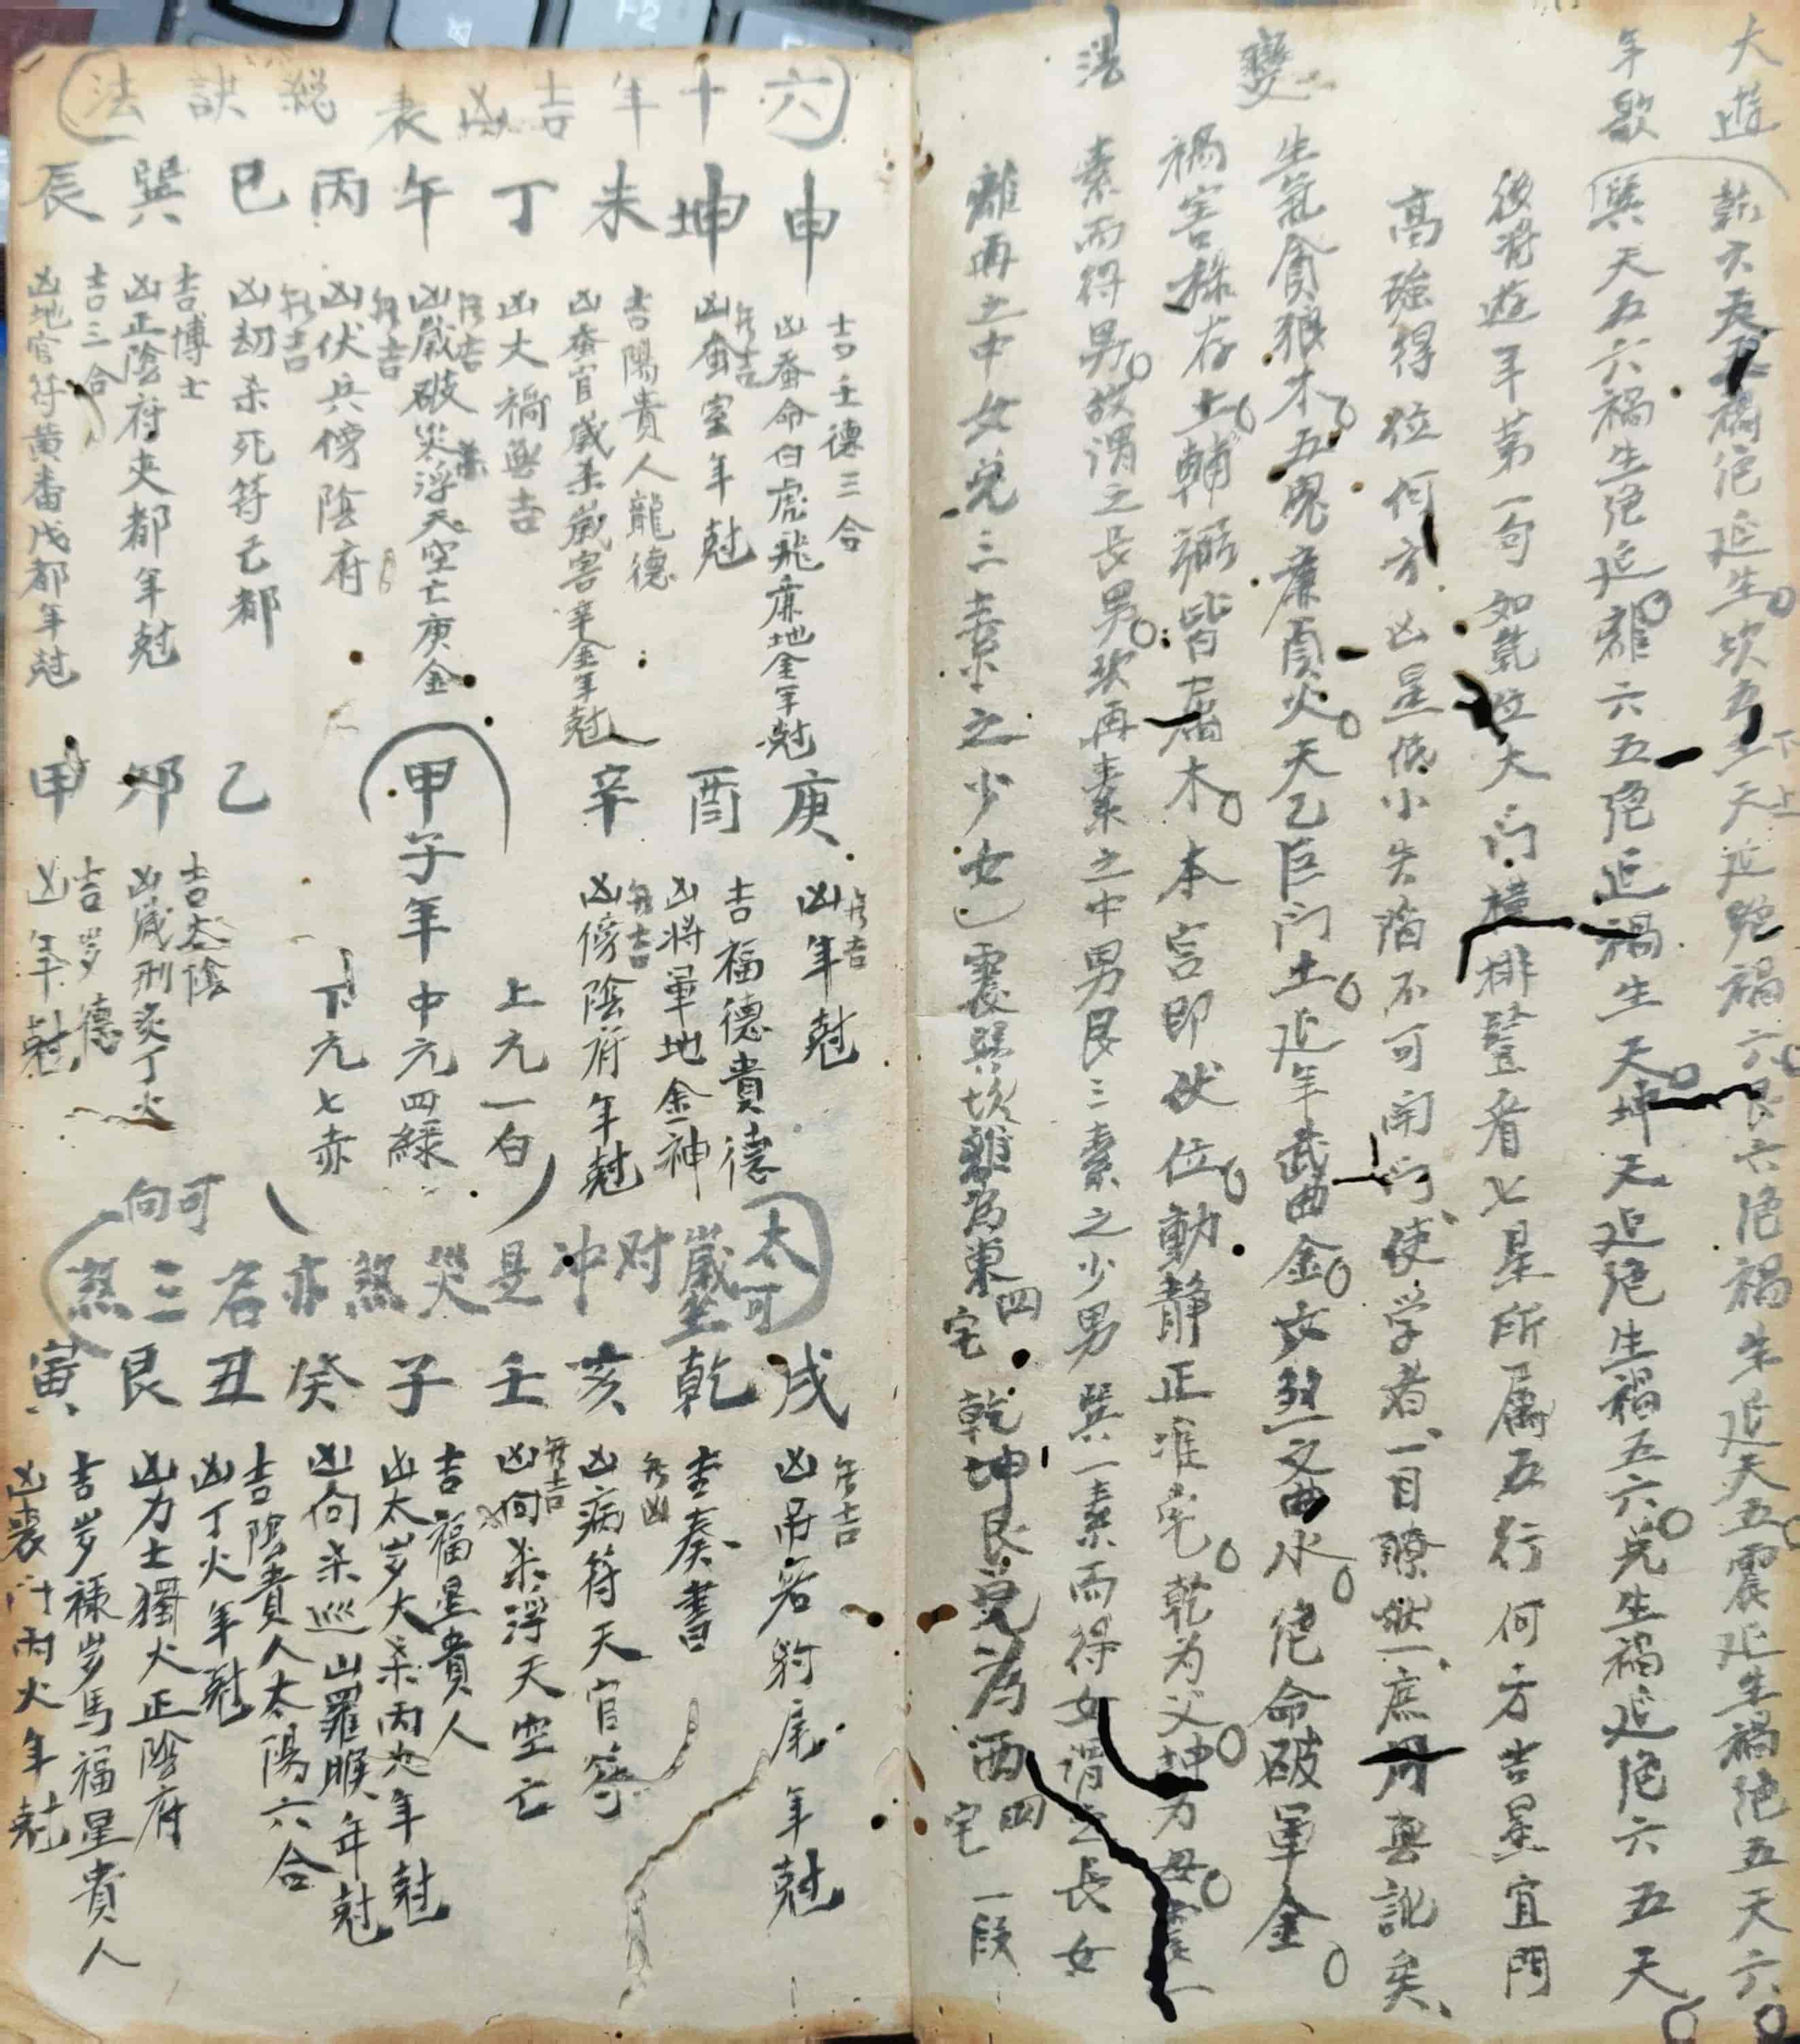 大遊
年歌
乾六天五禍绝延生坎五天延绝禍六艮六绝禍生延天五震延生禍绝五天六
下上
巽天五六禍生绝延離六五绝延禍生天坤天延绝生禍五六兑生禍延绝六五天
後附遊年第一句如乾位大门橫排豎看七星所屬五行何方吉星宜門
高強得位何方凶星低小失陷不可開门使学者一目瞭然庶毋舛訛矣
變
生氣貪狼木五鬼廉貞火天乙巨门土延年武曲金六煞文曲水绝命破軍金
禍害祿存土輔弼皆屬木本宮即伏位動静正准宅乾为父坤为母震一
法
素而得男故謂之長男坎再素之中男艮三素之少男巽一素而得女謂之長女
離再之中女兑三素之少女震巽坎離為東四宅乾坤艮兑為西四宅一段
六十年吉凶表總訣法
申坤未丁午丙巳巽辰
吉壬德三合
凶蚕命白虎飛廉地金年尅
無吉
凶蚕室年尅
吉陽貴人龍德
凶蚕官歲杀歲害辛金年尅
凶大禍無吉
無吉
凶歲破災杀浮天空亡庚金
無吉
凶伏兵傍陰府
無吉
凶劫杀死符己都
吉博士
凶正陰府夾都年尅
吉三合
凶地官符黄番戊都年尅
庚酉辛
無吉
凶年尅
吉福德貴德
凶將軍地金神
無吉
凶傍陰府年尅
甲子年
上元一白
中元四綠
下元七赤
乙卯甲
吉太陰
凶歲刑炙丁火
吉岁德
凶年尅
太歲对冲是災煞亦名三煞
可坐
可向
戌乾亥壬子癸丑艮寅
無吉
凶吊客豹尾年尅
吉奏書
無凶
凶病符天官符
無吉
凶向杀浮天空亡
吉福星貴人
凶太岁大杀丙火年尅
凶向杀巡山羅睺年尅
吉陰貴人太陽六合
凶丁火年尅
凶力士獨火正陰府
吉岁祿岁馬福星貴人
凶喪门丙火年尅